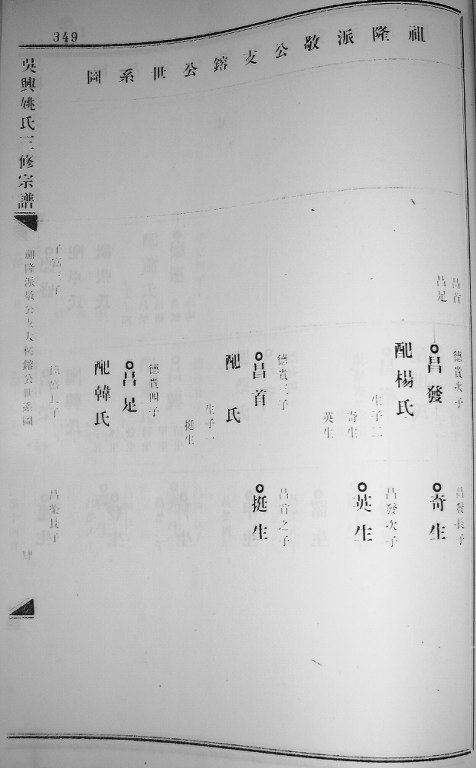 349
祖隆派敬公支鎔公世系圖
昌首
昌足
德貴次子
昌發
配楊氏
生子二
奇生
英生
德貴三子
昌首
配 氏
生子一
挺生
德貴四子
昌足
配韓氏
昌發長子
奇生
昌發次子
英生
昌首之子
挺生
吳興姚氏三修宗譜